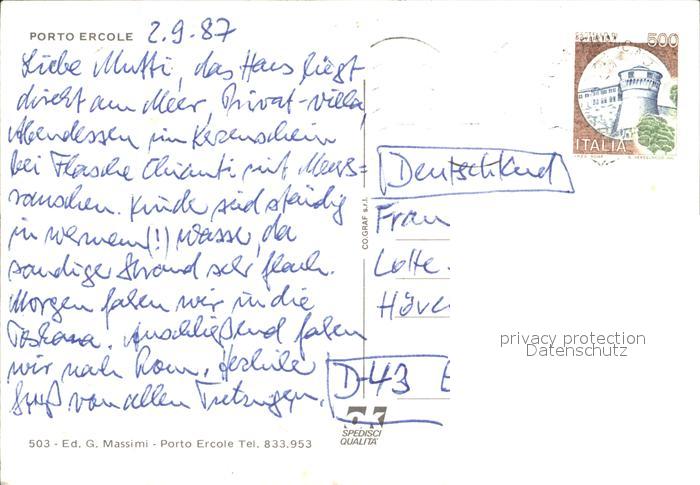 PORTO ERCOLE 2.9.87
Liebe Mutti, das Haus liegt
direkt am Meer, Privat-Villa,
Abendessen im Kerzenschein
bei Flasche Chianti mit Meeres=
rauschen. Kinder sind ständig
in warmem (!) Wasser, da
sandiger Strand sehr flach.
Morgen fahren wir in die
Toskana. Anschließend fahren
wir nach Rom. Herzliche
Grüße von allen
503 - Ed. G. Massimi - Porto Ercole Tel. 833.953
CO.GRAF s.r.l.
SPEDISCI
QUALITA'
500
ITALIA
Deutschland
Frau
Lotte
D-43 E
privacy protection
Datenschutz